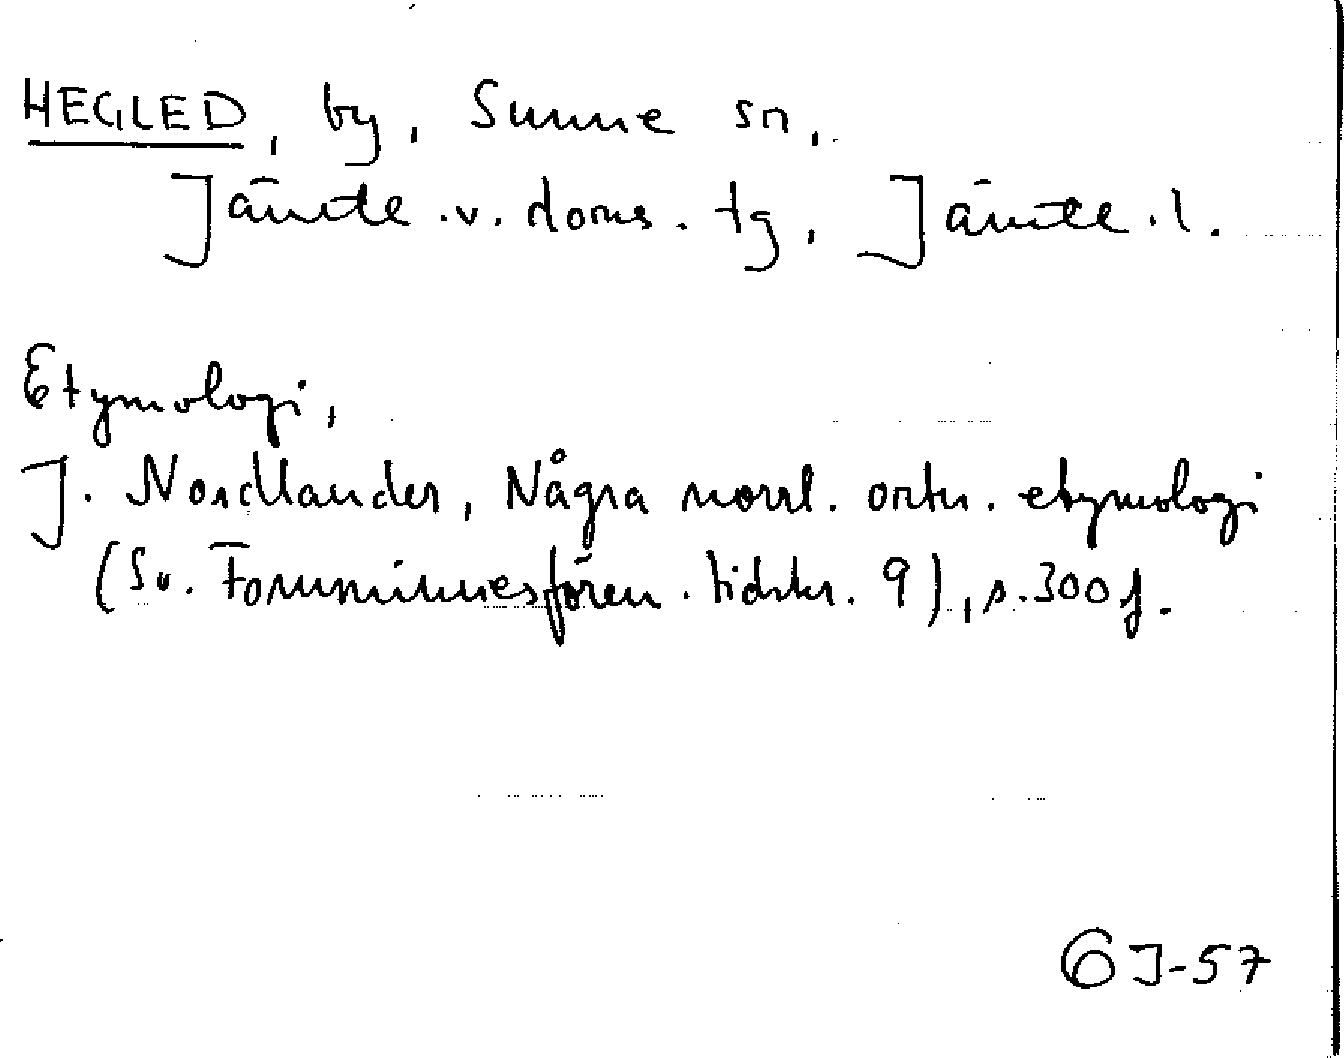 HEGLED, by, Sunne sn,
Jämte.v.doms.tg, Jämtl.l.
Etymologi,
J. Nordlander, Några norrl. ortn. etymologi
(Sv. Fornminnesfören. tidskr. 9), s.300f.
GJ-57